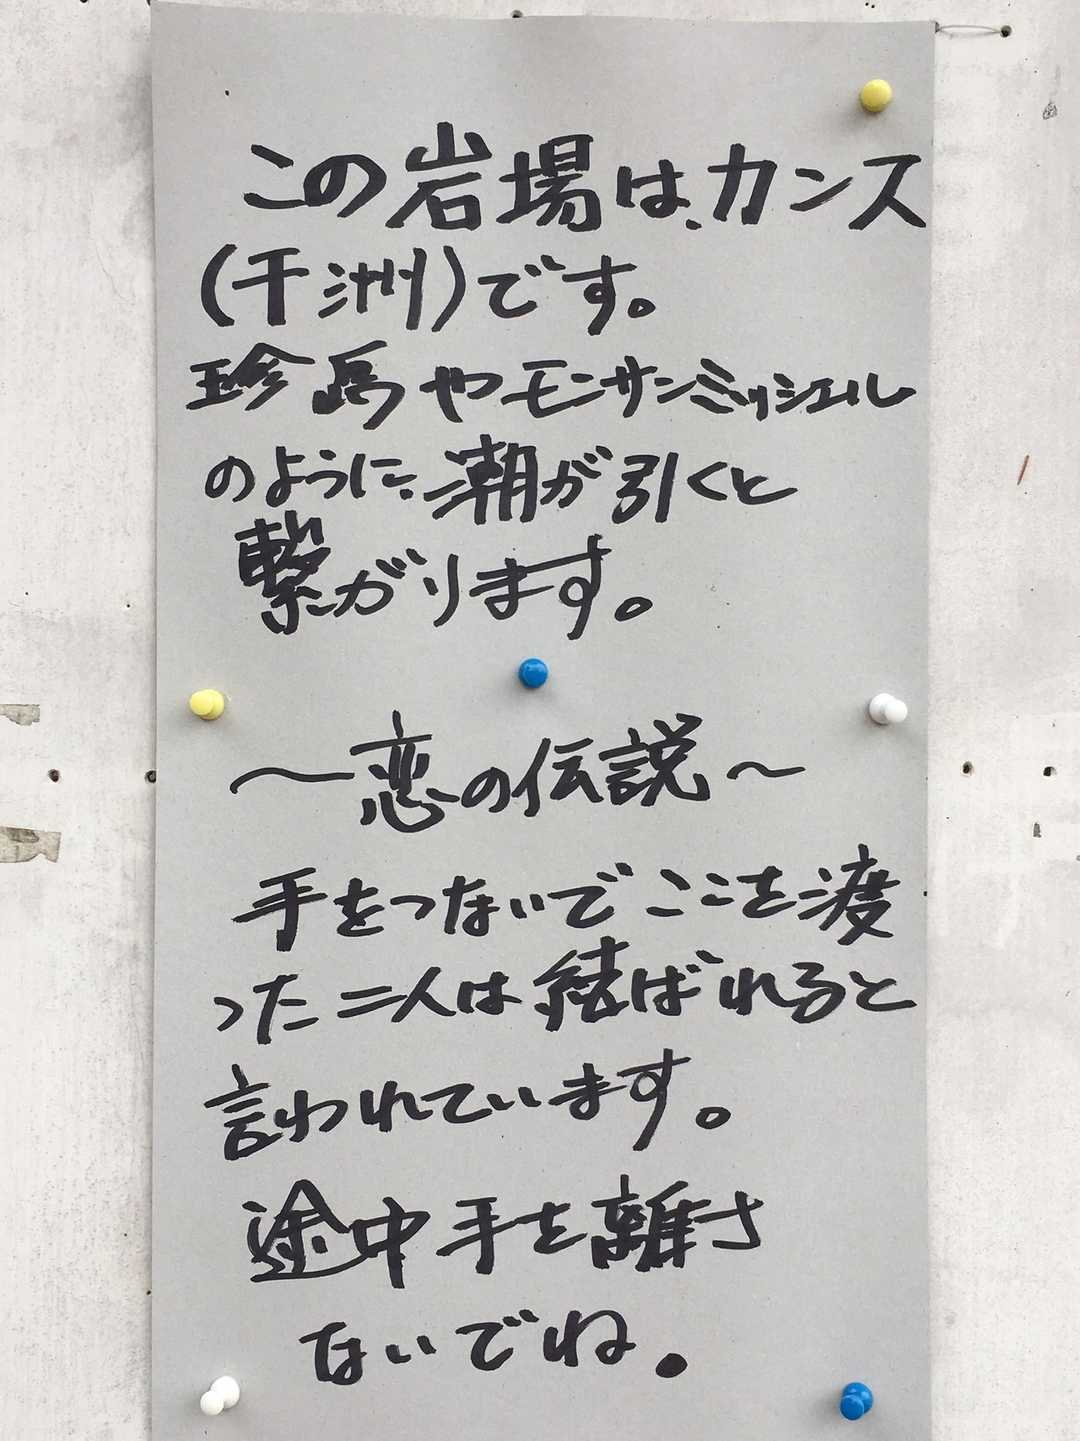 この岩場は、カンス
(干洲)です。
珍島やモンサンミッシェル
のように、潮が引くと
繋がります。
～恋の伝説～
手をつないでここを渡
った二人は結ばれると
言われています。
途中手を離さ
ないでね。